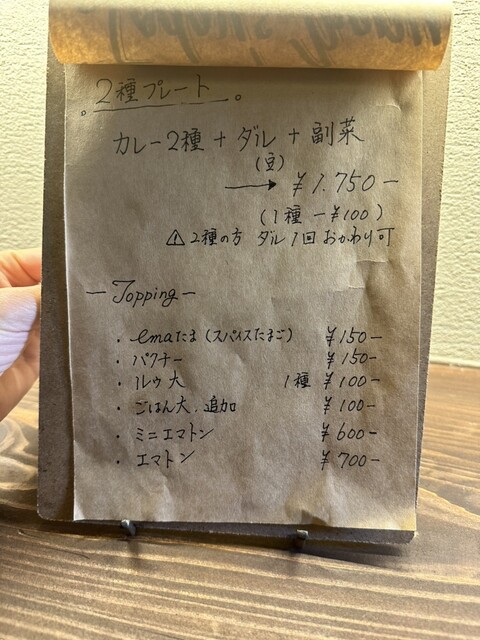 2種プレート
カレー2種 + ダル + 副菜
(豆)
→ ¥1.750-
(1種 -¥100)
⚠ 2種の方 ダル1回おかわり可
- Topping -
・emaたま(スパイスたまご) ¥150-
・パクチー ¥150-
・ルゥ大 1種 ¥100-
・ごはん大.追加 ¥100-
・ミニエマトン ¥600-
・エマトン ¥700-